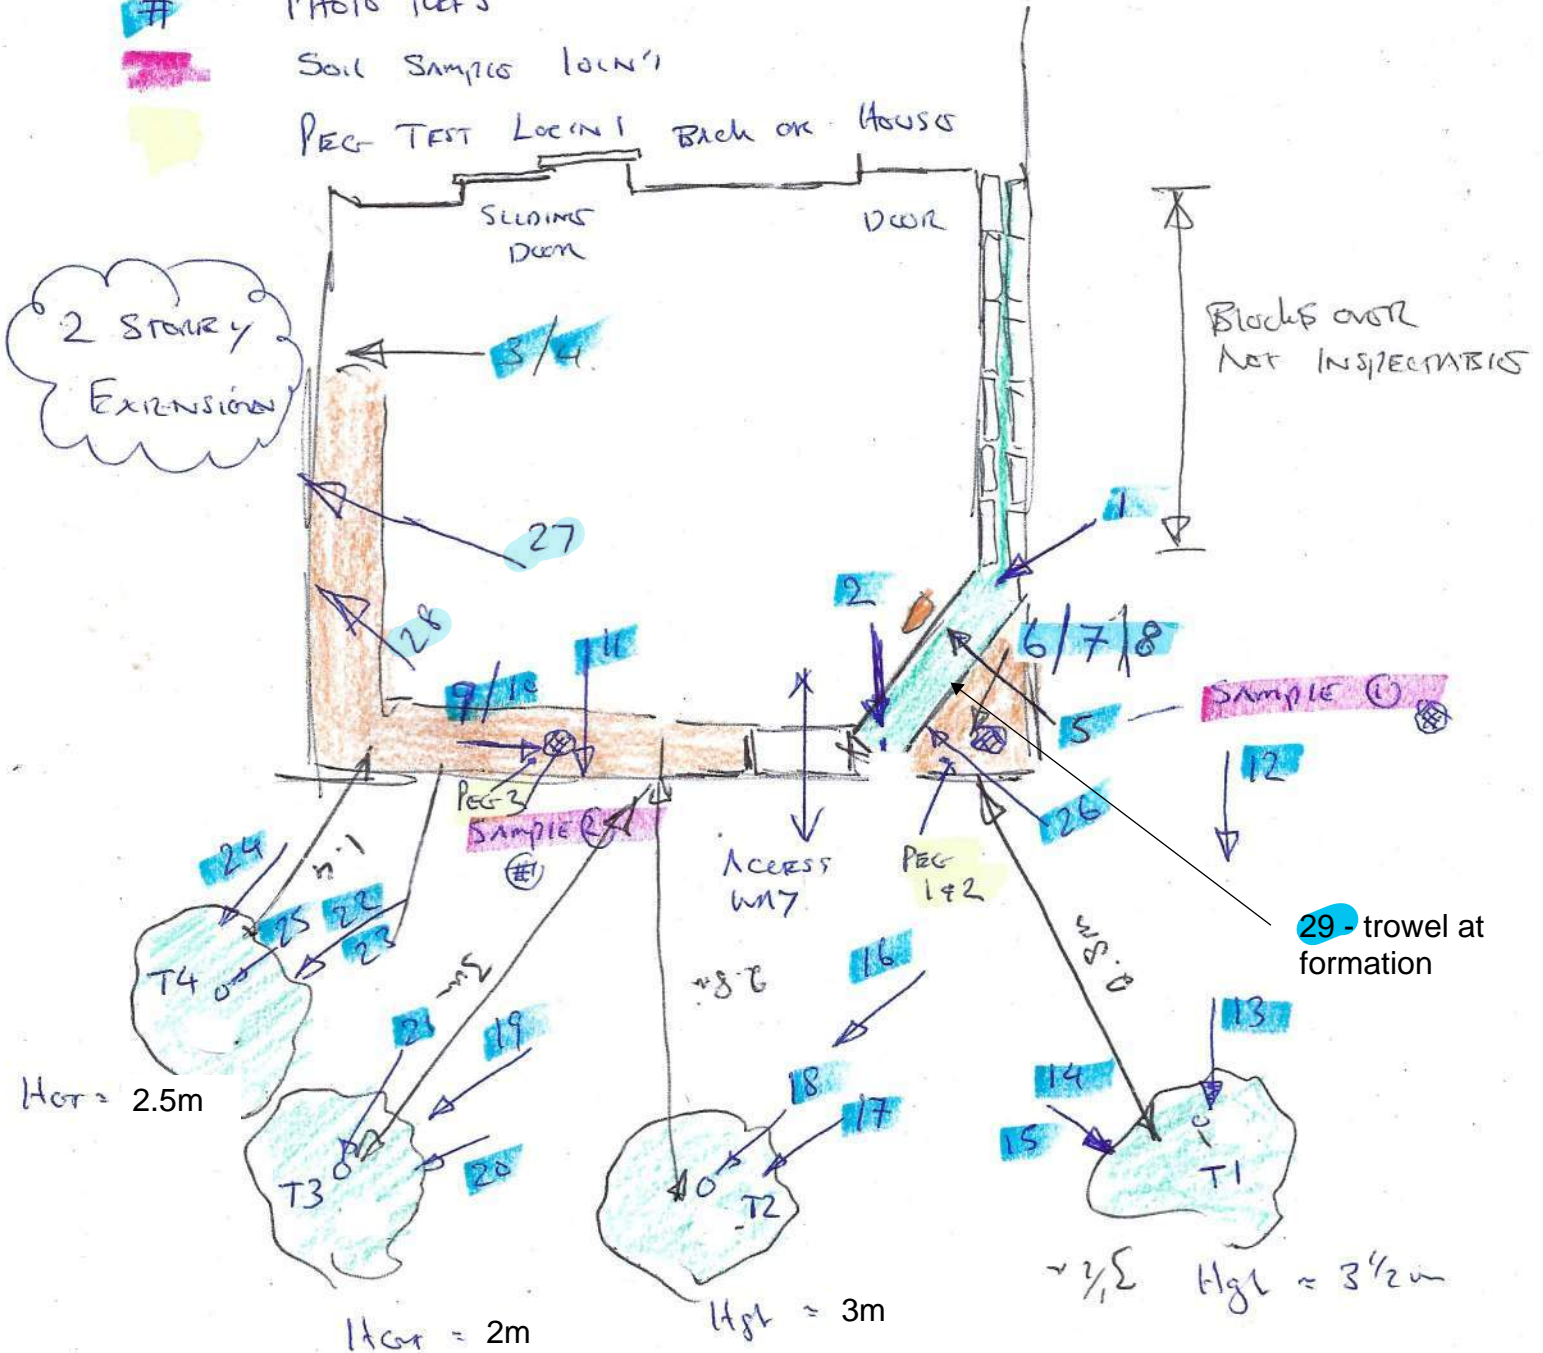 # PHOTO REFS
SOIL SAMPLE LOCN'S
PEG TEST LOCN'S BACK OF HOUSE
SLIDING
DOOR
DOOR
2 STOREY
EXTENSION
3/4
BLOCKS OVER
NOT INSPECTABLE
27
1
2
28
11
6/7/8
9/10
SAMPLE ①
5
12
PEG 3
SAMPLE ②
26
24
ACCESS
WAY
PEG
1&2
25
22
23
29 - trowel at
formation
T4
3m
2.8m
16
0.8m
21
19
13
Hgt = 2.5m
18
14
17
15
20
T3
T2
T1
Hgt = 3½m
Hgt = 3m
Hgt = 2m